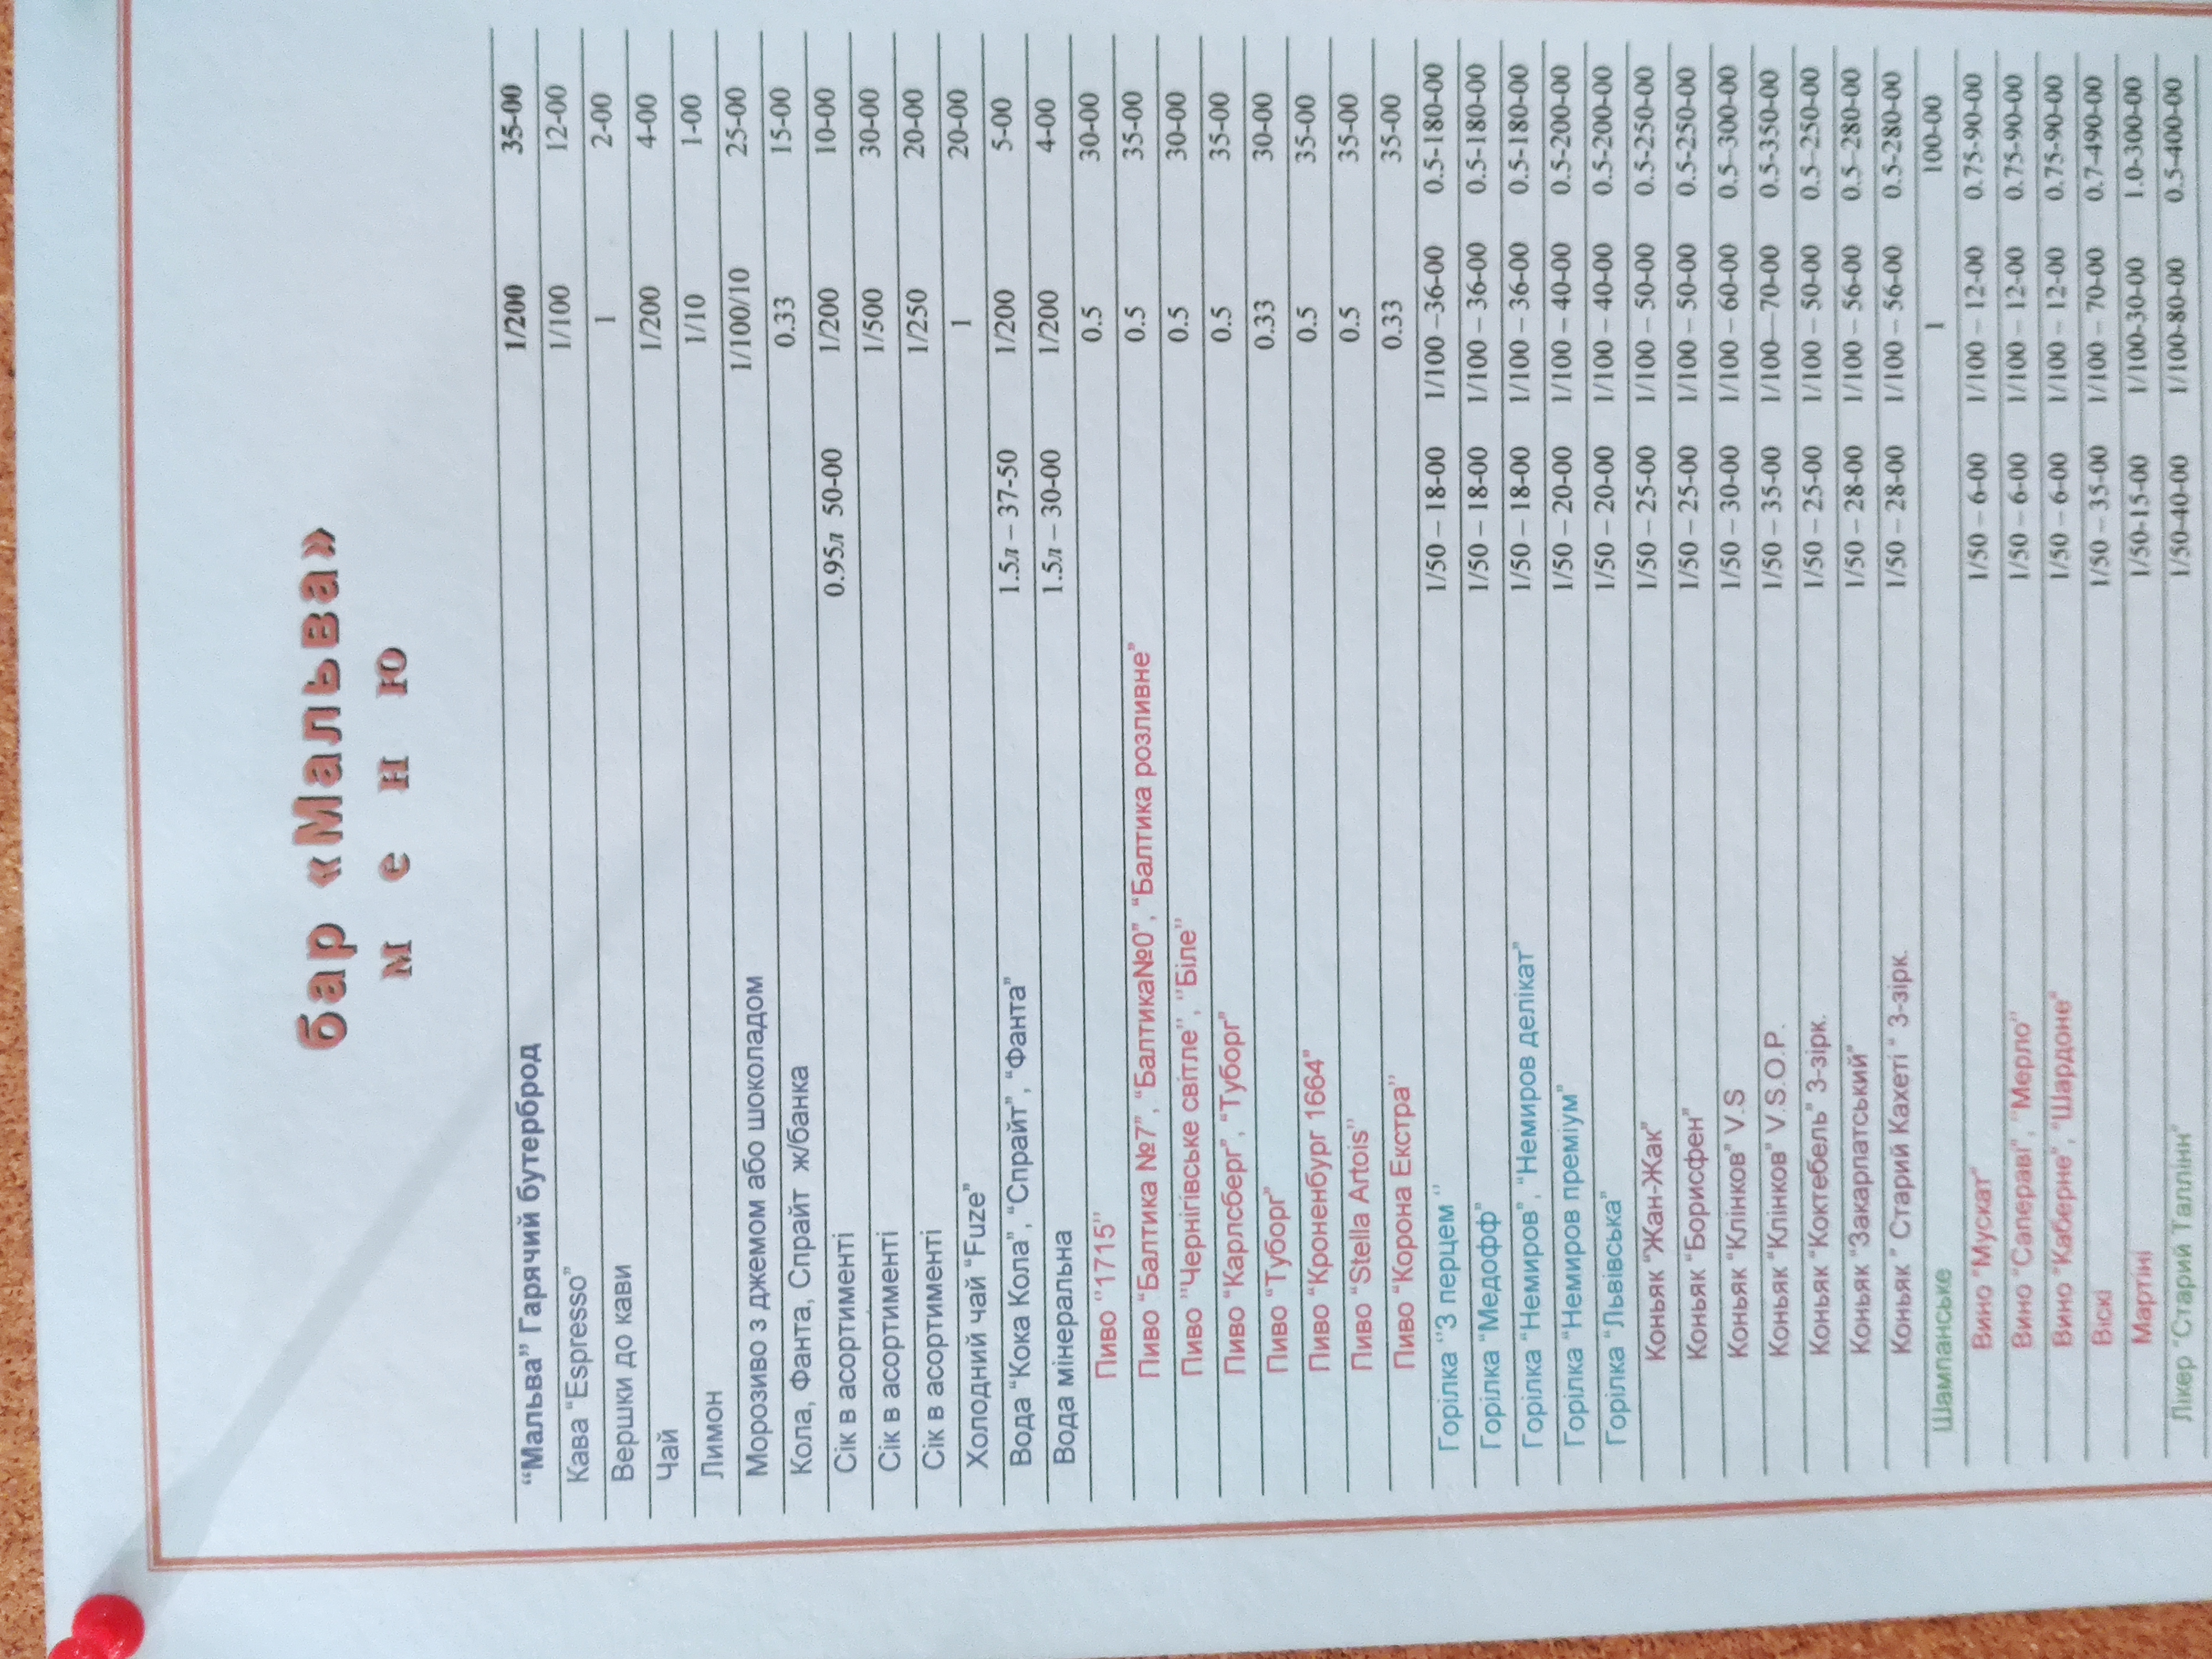 бар «Мальва»
м е н ю
“Мальва” Гарячий бутерброд 1/200 35-00
Кава “Espresso” 1/100 12-00
Вершки до кави 1 2-00
Чай 1/200 4-00
Лимон 1/10 1-00
Морозиво з джемом або шоколадом 1/100/10 25-00
Кола, Фанта, Спрайт ж/банка 0.33 15-00
Сік в асортименті 0.95л 50-00 1/200 10-00
Сік в асортименті 1/500 30-00
Сік в асортименті 1/250 20-00
Холодний чай “Fuze” 1 20-00
Вода “Кока Кола”, “Спрайт”, “Фанта” 1.5л – 37-50 1/200 5-00
Вода мінеральна 1.5л – 30-00 1/200 4-00
Пиво “1715” 0.5 30-00
Пиво “Балтика №7”, “Балтика№0”, “Балтика розливне” 0.5 35-00
Пиво “Чернігівське світле”, “Біле” 0.5 30-00
Пиво “Карлсберг”, “Туборг” 0.5 35-00
Пиво “Туборг” 0.33 30-00
Пиво “Кроненбург 1664” 0.5 35-00
Пиво “Stella Artois” 0.5 35-00
Пиво “Корона Екстра” 0.33 35-00
Горілка “З перцем “ 1/50 – 18-00 1/100 –36-00 0.5-180-00
Горілка “Медофф” 1/50 – 18-00 1/100 – 36-00 0.5-180-00
Горілка “Немиров”, “Немиров делікат” 1/50 – 18-00 1/100 – 36-00 0.5-180-00
Горілка “Немиров преміум” 1/50 – 20-00 1/100 – 40-00 0.5-200-00
Горілка “Львівська” 1/50 – 20-00 1/100 – 40-00 0.5-200-00
Коньяк “Жан-Жак” 1/50 – 25-00 1/100 – 50-00 0.5-250-00
Коньяк “Борисфен” 1/50 – 25-00 1/100 – 50-00 0.5-250-00
Коньяк “Клінков” V.S 1/50 – 30-00 1/100 – 60-00 0.5-300-00
Коньяк “Клінков” V.S.O.P. 1/50 – 35-00 1/100—70-00 0.5-350-00
Коньяк “Коктебель” 3-зірк. 1/50 – 25-00 1/100 – 50-00 0.5-250-00
Коньяк “Закарпатський” 1/50 – 28-00 1/100 – 56-00 0.5-280-00
Коньяк ” Старий Кахеті “ 3-зірк. 1/50 – 28-00 1/100 – 56-00 0.5-280-00
Шампанське 1 100-00
Вино “Мускат” 1/50 – 6-00 1/100 – 12-00 0.75-90-00
Вино “Сапераві”, “Мерло” 1/50 – 6-00 1/100 – 12-00 0.75-90-00
Вино “Каберне”, “Шардоне” 1/50 – 6-00 1/100 – 12-00 0.75-90-00
Віскі 1/50 – 35-00 1/100 – 70-00 0.7-490-00
Мартіні 1/50-15-00 1/100-30-00 1.0-300-00
Лікер “Старий Таллінн” 1/50-40-00 1/100-80-00 0.5-400-00